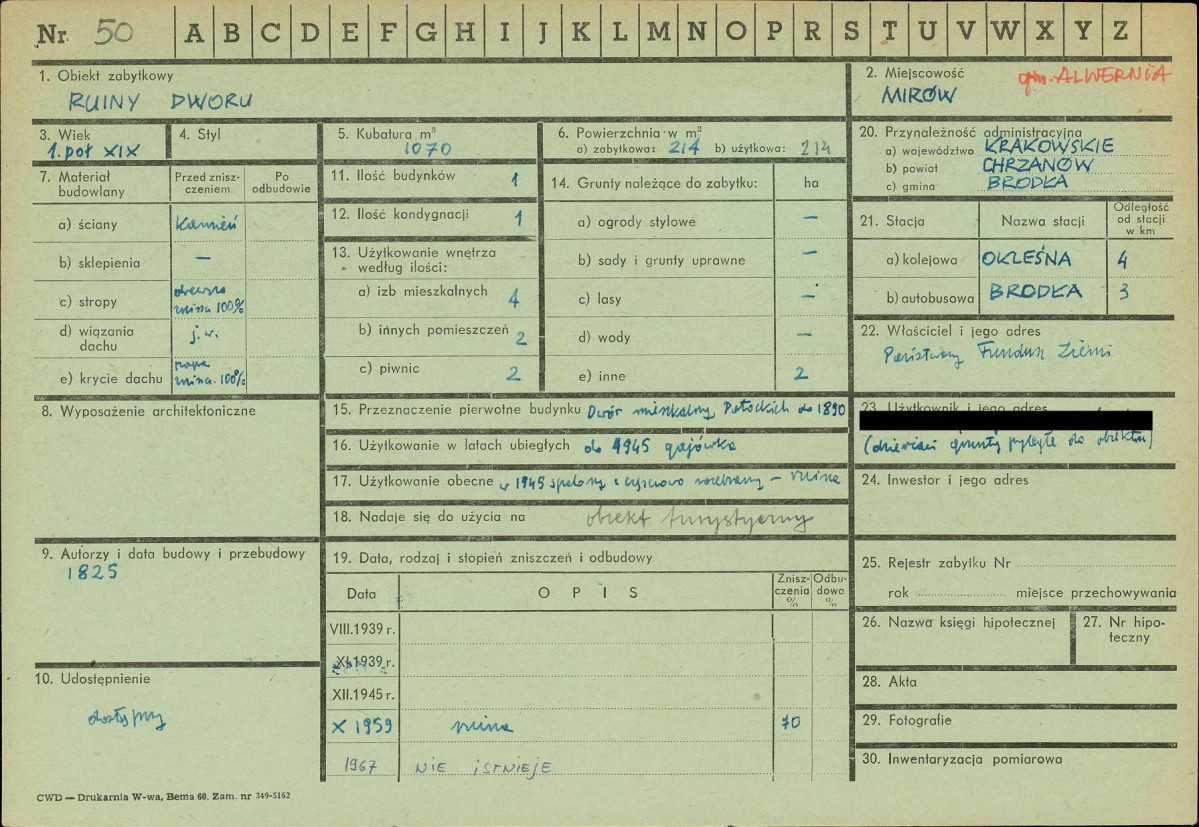 Nr. 50 A B C D E F G H I J K L M N O P R S T U V W X Y Z
1. Obiekt zabytkowy
RUINY DWORU
2. Miejscowość gm. ALWERNIA
MIRÓW
3. Wiek
1. poł XIX
4. Styl
5. Kubatura m³
1070
6. Powierzchnia w m²
a) zabytkowa: 214 b) użytkowa: 214
20. Przynależność administracyjna
a) województwo KRAKOWSKIE
b) powiat CHRZANÓW
c) gmina BRODŁA
7. Materiał budowlany
Przed zniszczeniem
Po odbudowie
a) ściany kamień
b) sklepienia —
c) stropy drewno
ruina 100%
d) wiązania dachu j.w.
e) krycie dachu papa
ruina 100%
11. Ilość budynków 1
12. Ilość kondygnacji 1
13. Użytkowanie wnętrza
według ilości:
a) izb mieszkalnych 4
b) innych pomieszczeń 2
c) piwnic 2
14. Grunty należące do zabytku: ha
a) ogrody stylowe —
b) sady i grunty uprawne —
c) lasy —
d) wody —
e) inne 2
21. Stacja Nazwa stacji Odległość od stacji w km
a) kolejowa OKLEŚNA 4
b) autobusowa BRODŁA 3
22. Właściciel i jego adres
Państwowy Fundusz Ziemi
8. Wyposażenie architektoniczne
15. Przeznaczenie pierwotne budynku Dwór mieszkalny Potockich do 1890
16. Użytkowanie w latach ubiegłych do 1945 gajówka
17. Użytkowanie obecne w 1945 spalony i częściowo rozebrany — ruina
18. Nadaje się do użycia na obiekt turystyczny
23. Użytkownik i jego adres
(dzierżawi grunty przyległe do obiektu)
24. Inwestor i jego adres
9. Autorzy i data budowy i przebudowy
1825
19. Data, rodzaj i stopień zniszczeń i odbudowy
Data OPIS Zniszczenia % Odbudowa %
VIII.1939 r.
XI.1939 r.
XII.1945 r.
X 1959 ruina 70
1967 NIE ISTNIEJE
10. Udostępnienie
dostępny
25. Rejestr zabytku Nr
rok miejsce przechowywania
26. Nazwa księgi hipotecznej
27. Nr hipoteczny
28. Akta
29. Fotografie
30. Inwentaryzacja pomiarowa
CWD — Drukarnia W-wa, Bema 60. Zam. nr 349-5162